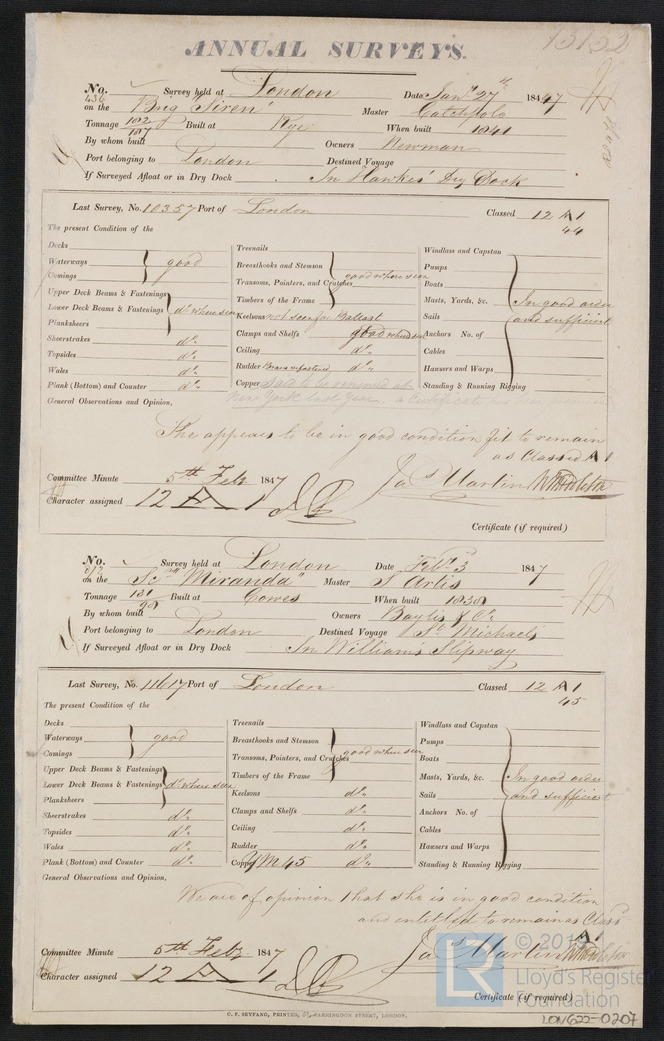 13132
ANNUAL SURVEYS.
No. 436 Survey held at London Date Jany 27th 1847
on the Brig "Siren" Master Catchpole
Tonnage 182/187 Built at Rye When built 1841
By whom built Owners Newman
Port belonging to London Destined Voyage
If Surveyed Afloat or in Dry Dock In Hawkes' Dry Dock
Last Survey, No. 10357 Port of London Classed 12 A 1
44
The present Condition of the
Decks
Waterways good
Comings
Upper Deck Beams & Fastenings
Lower Deck Beams & Fastenings do where seen
Planksheers
Sheerstrakes do
Topsides do
Wales do
Plank (Bottom) and Counter do
Treenails
Breasthooks and Stemson good where seen
Transoms, Pointers, and Crutches
Timbers of the Frame
Keelsons not seen for Ballast
Clamps and Shelfs good where seen
Ceiling do
Rudder do
Copper Said to be renewed at
New York last year. a Certificate
Windlass and Capstan
Pumps
Boats
Masts, Yards, &c. In good order
Sails and sufficient
Anchors No. of
Cables
Hawsers and Warps
Standing & Running Rigging
General Observations and Opinion,
She appears to be in good condition fit to remain
as Classed A 1
Jas Martin
Committee Minute 5th Feb 1847
Character assigned 12 A 1
Certificate (if required)
No. Survey held at London Date Feby 3 1847
on the Scr "Miranda" Master S Artis
Tonnage 131/98 Built at Cowes When built 1838
By whom built Owners Baylis & Co.
Port belonging to London Destined Voyage St Michaels
If Surveyed Afloat or in Dry Dock In Williams Slipway
Last Survey, No. 11617 Port of London Classed 12 A 1
45
The present Condition of the
Decks
Waterways good
Comings
Upper Deck Beams & Fastenings
Lower Deck Beams & Fastenings do where seen
Planksheers
Sheerstrakes do
Topsides do
Wales do
Plank (Bottom) and Counter do
Treenails
Breasthooks and Stemson good where seen
Transoms, Pointers, and Crutches
Timbers of the Frame
Keelsons do
Clamps and Shelfs do
Ceiling do
Rudder do
Copper YM 45 do
Windlass and Capstan
Pumps
Boats
Masts, Yards, &c. In good order
Sails and sufficient
Anchors No. of
Cables
Hawsers and Warps
Standing & Running Rigging
General Observations and Opinion,
We are of opinion that she is in good condition
and entitled to remain as Class'd
A 1
Jas Martin
Committee Minute 5th Feb 1847
Character assigned 12 A 1
Certificate (if required)
C. F. SEYFANG, PRINTER, FARRINGDON STREET, LONDON.
LR
Lloyd's Register
Foundation
LON622-0207